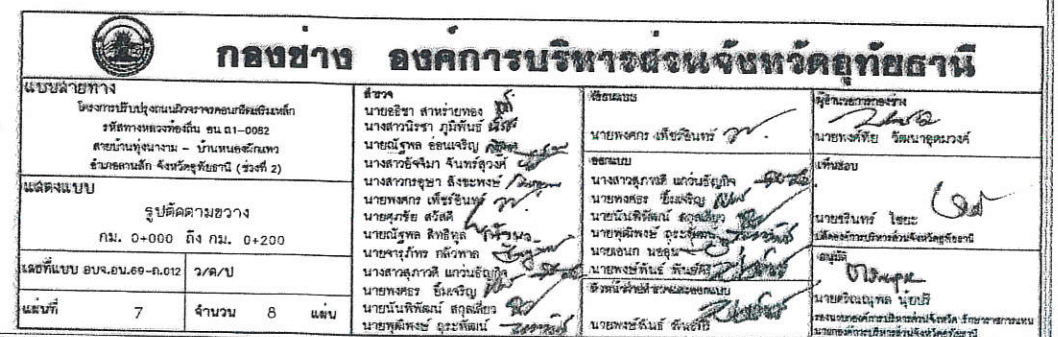 กองช่าง องค์การบริหารส่วนจังหวัดอุทัยธานี
แบบสายทาง
โครงการปรับปรุงถนนผิวจราจรคอนกรีตเสริมเหล็ก
รหัสทางหลวงท้องถิ่น อน.ถ1-0082
สายบ้านทุ่งนางาม - บ้านหนองผักแพว
อำเภอลานสัก จังหวัดอุทัยธานี (ช่วงที่ 2)
แสดงแบบ
รูปตัดตามขวาง
กม. 0+000 ถึง กม. 0+200
เลขที่แบบ อบจ.อน.69-ถ.012 ว/ด/ป
แผ่นที่ 7 จำนวน 8 แผ่น
สำรวจ
นายอธิชา สาหร่ายทอง
นางสาวนิรชา ภูมิพันธ์
นายณัฐพล อ่อนเจริญ
นางสาวอัจจิมา จันทร์สุวงศ์
นางสาวกรอุษา สังขะพงษ์
นายพงศกร เพ็ชรอินทร์
นายศุภชัย สวัสดี
นายณัฐพล สิทธิพูล
นายจารุภัทร กล้วพาล
นางสาวสุภาวดี แกว่นธัญกิจ
นายพงศธร ยิ้มเจริญ
นายนันพิพัฒน์ สกุลเลี่ยว
นายพุฒิพงษ์ ถุระพัฒน์
เขียนแบบ
นายพงศกร เพ็ชรอินทร์
ออกแบบ
นางสาวสุภาวดี แกว่นธัญกิจ
นายพงศธร ยิ้มเจริญ
นายนันพิพัฒน์ สกุลเลี่ยว
นายพุฒิพงษ์ ถุระพัฒน์
นายเอนก
นายพงษ์พันธ์
หัวหน้าฝ่ายสำรวจและออกแบบ
นายพงษ์พันธ์
ผู้อำนวยการกองช่าง
นายพงศ์ทัย วัฒนาอุดมวงศ์
เห็นชอบ
นายชรินทร์ ไชยะ
ปลัดองค์การบริหารส่วนจังหวัดอุทัยธานี
อนุมัติ
นายศริณณุพล นุ่ยปรี
รองนายกองค์การบริหารส่วนจังหวัด รักษาราชการแทน
นายกองค์การบริหารส่วนจังหวัดอุทัยธานี